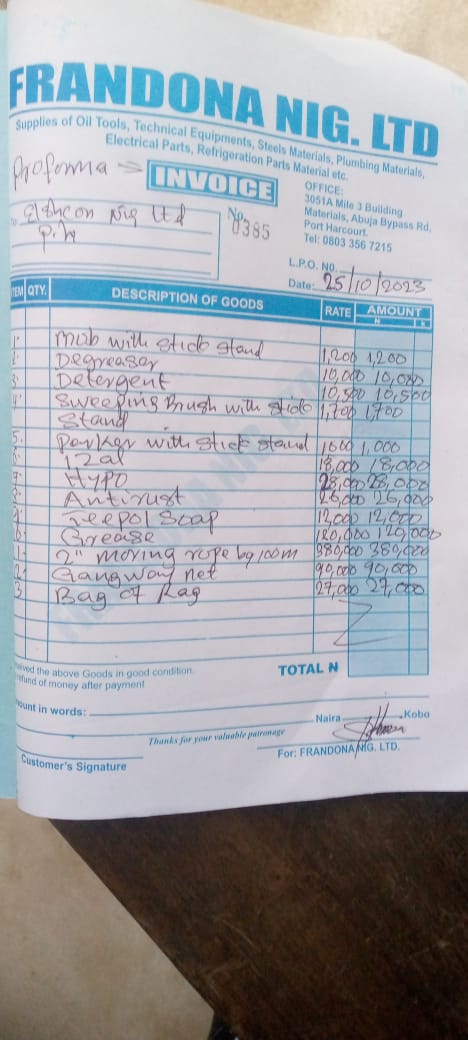 FRANDONA NIG. LTD
Supplies of Oil Tools, Technical Equipments, Steels Materials, Plumbing Materials,
Electrical Parts, Refrigeration Parts Material etc.
Proforma →
INVOICE
OFFICE:
3051A Mile 3 Building
Materials, Abuja Bypass Rd,
Port Harcourt.
Tel: 0803 356 7215
Nig Ltd
No. 0385
P.H
L.P.O. NO.
Date: 25/10/2023
ITEM QTY. DESCRIPTION OF GOODS RATE AMOUNT
N K
1. Mob with stick stand 1,200 1,200
2. Degreaser 10,000 10,000
3. Detergent 10,500 10,500
4. Sweeping Brush with stick 1,700 1,700
Stand
5. Parker with stick stand 1000 1,000
6. Izal 18,000 18,000
7. Hypo 28,000 28,000
8. Antirust 26,000 26,000
9. Teepol Soap 12,000 12,000
10. Grease 120,000 120,000
11. 2" moving rope by 100m 380,000 380,000
12. Gangway net 90,000 90,000
13. Bag of Rag 27,000 27,000
TOTAL N
the above Goods in good condition.
refund of money after payment
in words:
Naira Kobo
Thanks for your valuable patronage
Customer's Signature
For: FRANDONA NIG. LTD.